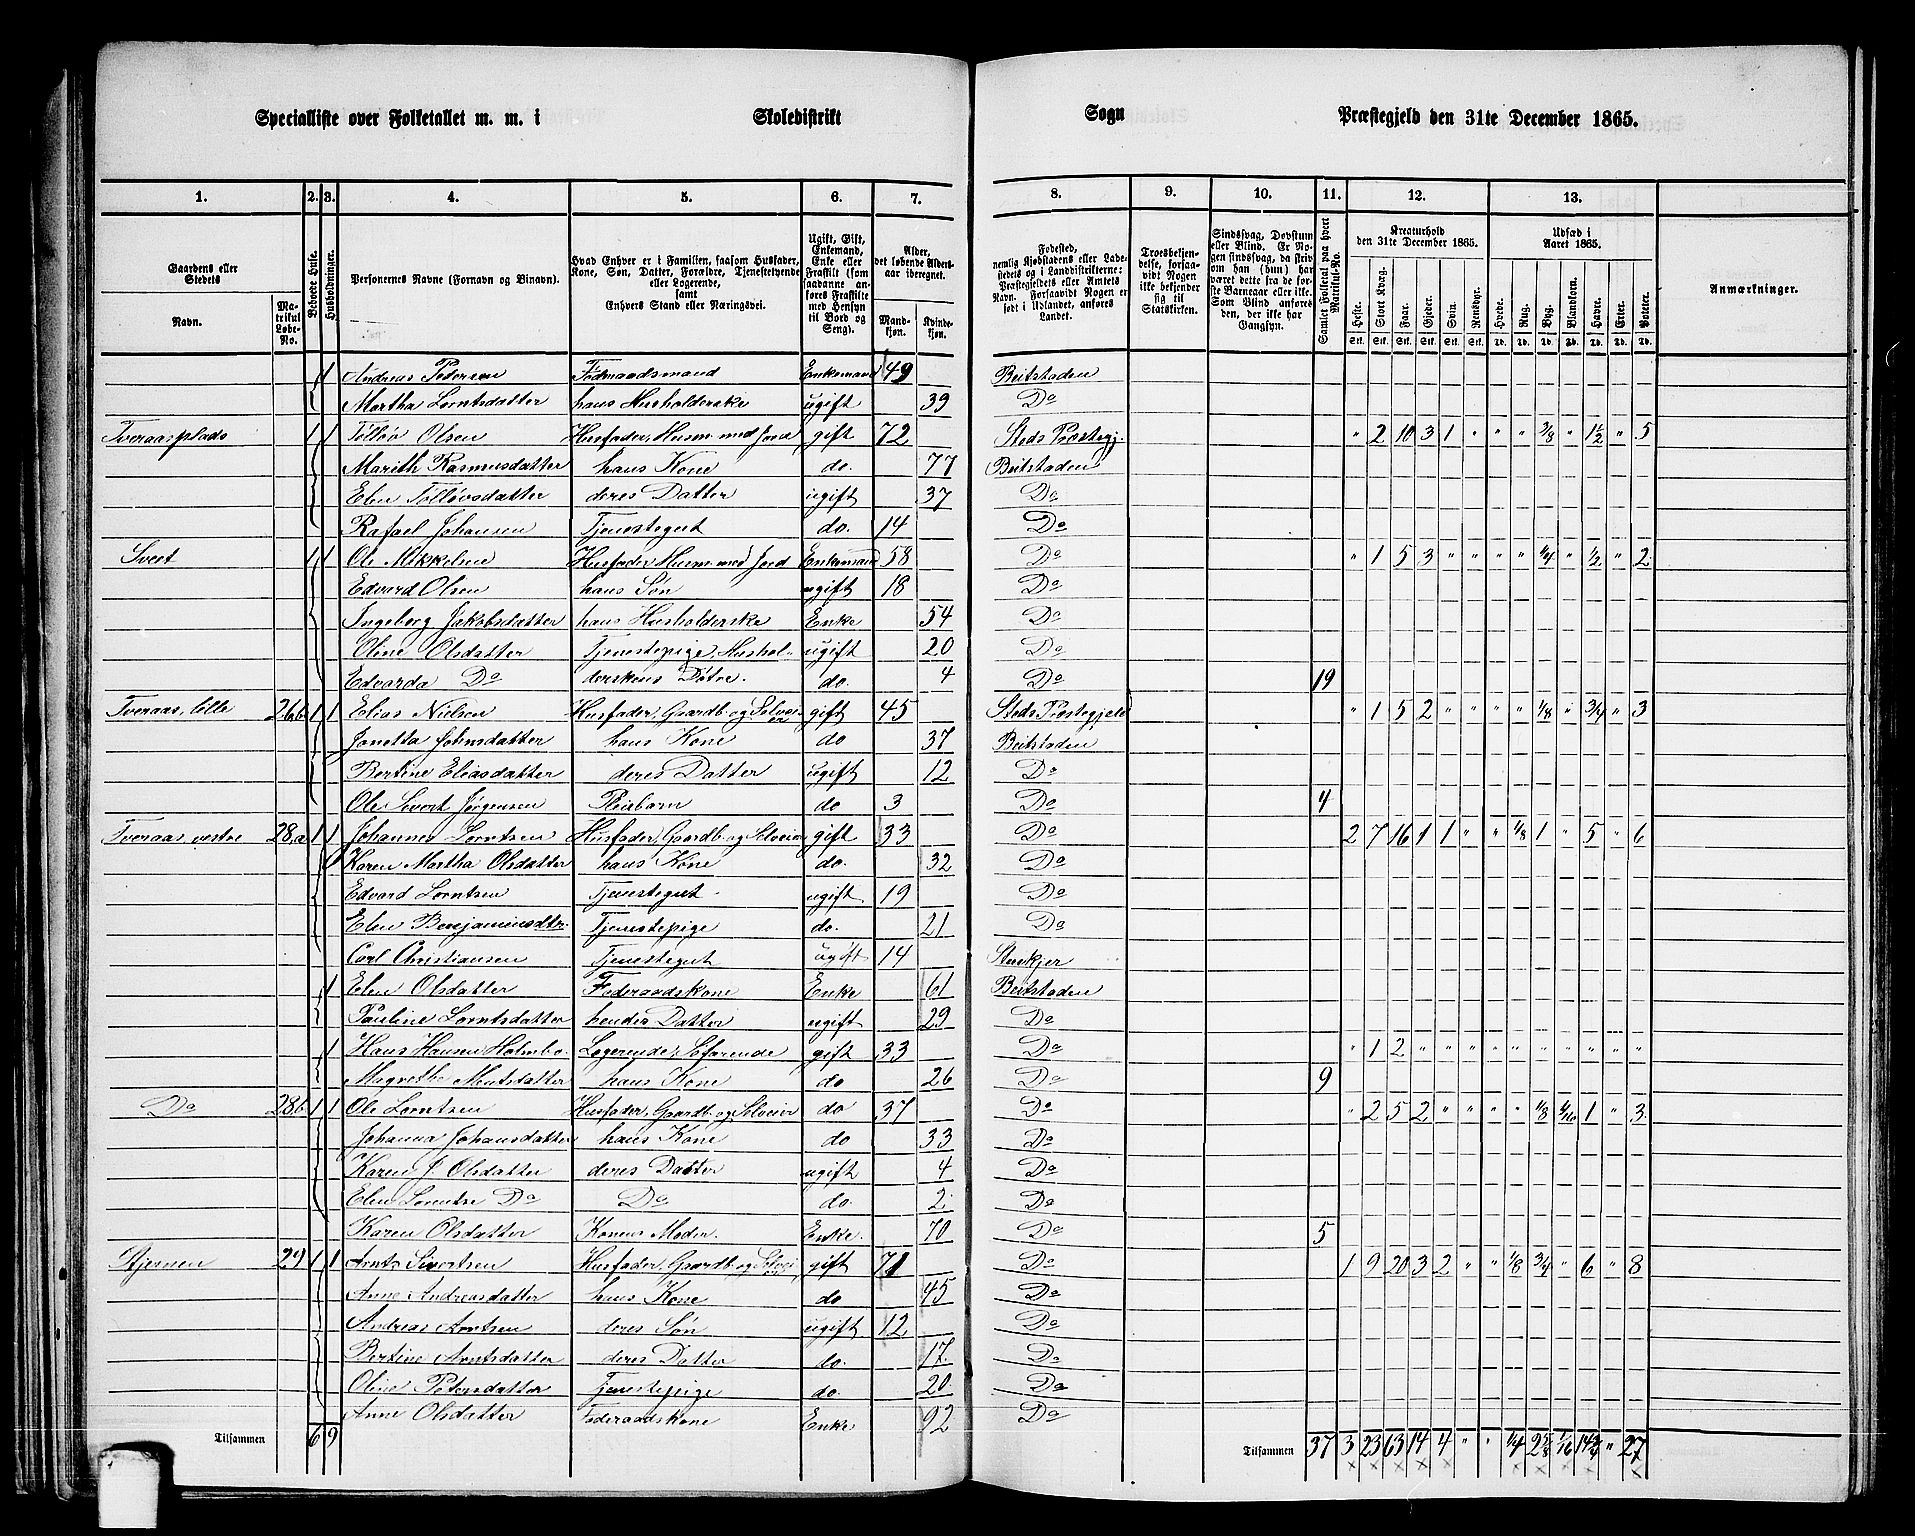 Specialliste over Folketallet m. m. i Skoledistrikt Sogn Præstegjeld den 31te December 1865.
1. 2. 3. 4. 5. 6. 7. 8. 9. 10. 11. 12. 13.
Gaardens eller Stedets Navn. Matrikul Løbe-No. Beboede Huse. Husholdninger. Personernes Navne (Fornavn og Binavn). Hvad Enhver er i Familien, saasom Husfader, Kone, Søn, Datter, Forældre, Tjenestetyende eller Logerende, samt Enhvers Stand eller Næringsvei. Ugift, Gift, Enkemand, Enke eller Fraskilt (som saadanne anføres Fraskilte med Hensyn til Bord og Seng). Alder, det løbende Aldersaar iberegnet. Mandkjøn. Kvindekjøn.
Fødested, nemlig Kjøbstadens eller Ladestedets og i Landdistrikterne: Præstegjeldets eller Amtets Navn. Forsaavidt Nogen er født i Udlandet, anføres Landet. Troesbekjendelse, forsaavidt Nogen ikke bekjender sig til Statskirken. Sindssvag, Døvstum eller Blind. Er Nogen sindssvag, da skriv om han (hun) har været dette fra de første Barneaar eller ikke. Som Blind anføres den, der ikke har Gangsyn. Samlet Folketal paa hvert Matrikul-No. Kreaturhold den 31te December 1865. Heste. Stort Kvæg. Faar. Gjeder. Svin. Rensdyr. Udsæd i Aaret 1865. Hvede. Rug. Byg. Blandkorn. Havre. Erter. Poteter. Anmærkninger.
1 Andreas Pedersen Føderaadsmand Enkemand 49 Beitstaden
Martha Lorntsdatter hans Husholderske ugift 39 Do
Tveraasplads 1 1 Tølløv Olsen Husfader, Husm. med Jord gift 72 Stods Præstegj. " 2 10 3 1 " " " 3/8 " 1 1/2 " 5
Marith Rasmusdatter hans Kone do. 77 Beitstaden
Elen Tølløvsdatter deres Datter ugift 37 Do
Rafael Johansen Tjenestegut do. 14 Do
Sveet 1 1 Ole Mikkelsen Husfader Husm. med Jord Enkemand 58 Do " 1 5 3 " " " " 1/4 " 1/2 " 2
Edvard Olsen hans Søn ugift 18 Do
Ingeberg Jakobsdatter hans Husholderske Enke 54 Do
Oline Olsdatter Tjenestepige, Hushol- ugift 20 Do
Edvarda Do derskens Døtre. do. 4 Do 19
Tveraas, lille 26b 1 1 Elias Nielsen Husfader, Gaardb. og Selveier gift 45 Stods Præstegjeld " 1 5 2 " " " " 1/8 " 3/4 " 3
Jonetta Johnsdatter hans Kone do 37 Beitstaden
Bertine Eliasdatter deres Datter ugift 12 Do
Ole Sivert Jørgensen Pleiebarn do 3 Do 4
Tveraas, vestre 28,a 1 1 Johannes Lorntsen Husfader, Gaardb. og Selveier gift 33 Do 2 7 16 1 1 " " 1/8 1 " 5 " 6
Karen Martha Olsdatter hans Kone do. 32 Do
Edvard Lorntsen Tjenestegut ugift 19 Do
Elen Benjaminsdtr. Tjenestepige do. 21 Do
Carl Christiansen Tjenestegut ugift 14 Stenkjer
1 Elen Olsdatter Føderaadskone Enke 61 Beitstaden
Pauline Lorntsdatter hendes Datter ugift 29 Do
1 Hans Hansen Holmbo. Logerende, Søfarende gift 33 Do " 1 2 " " " " " " " " " "
Magrethe Mentsdatter hans Kone do 26 Do 9
Do 28b 1 1 Ole Lorntsen Husfader, Gaardb. og Selveier do 37 Do " 2 5 2 " " " " 1/8 1/16 1 " 3
Johanna Johansdatter hans Kone do 33 Do
Karen J. Olsdatter deres Datter ugift 4 Do
Elen Lorentse Do Do do. 2 Do
Karen Olsdatter Konens Moder. Enke. 70 Do 5
Stjernen 29 1 1 Arnt Sivertsen Husfader, Gaardb. og Selvei gift 71 Do 1 9 20 3 2 " " 1/8 3/4 " 6 " 8
Anne Andreasdatter hans Kone do 45 Do
Andreas Arntsen deres Søn ugift 12 Do
Bertine Arntsdatter deres Datter do. 17 Do
Oline Petersdatter Tjenestepige do. 20 Do
Anne Olsdatter Føderaadskone Enke 92 Do
Tilsammen 6 9 Tilsammen 37 3 23 63 14 4 " " 1/4 2 5/8 1/16 14 3/4 " 27